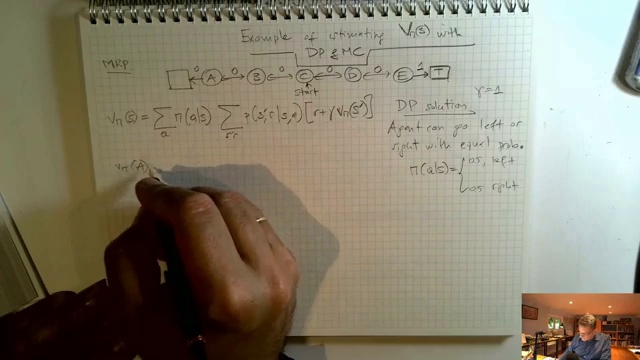 Example of estimating Vπ(s) with
DP & MC
MRP
0 A 0 B 0 C 0 D 0 E 1 T
start
Vπ(s) = Σ_a π(a|s) Σ_{s',r} p(s',r|s,a) [r+γ Vπ(s')]
DP solution γ=1
Agent can go left or
right with equal prob.
π(a|s) = { 0.5, left
0.5 right
Vπ(A)